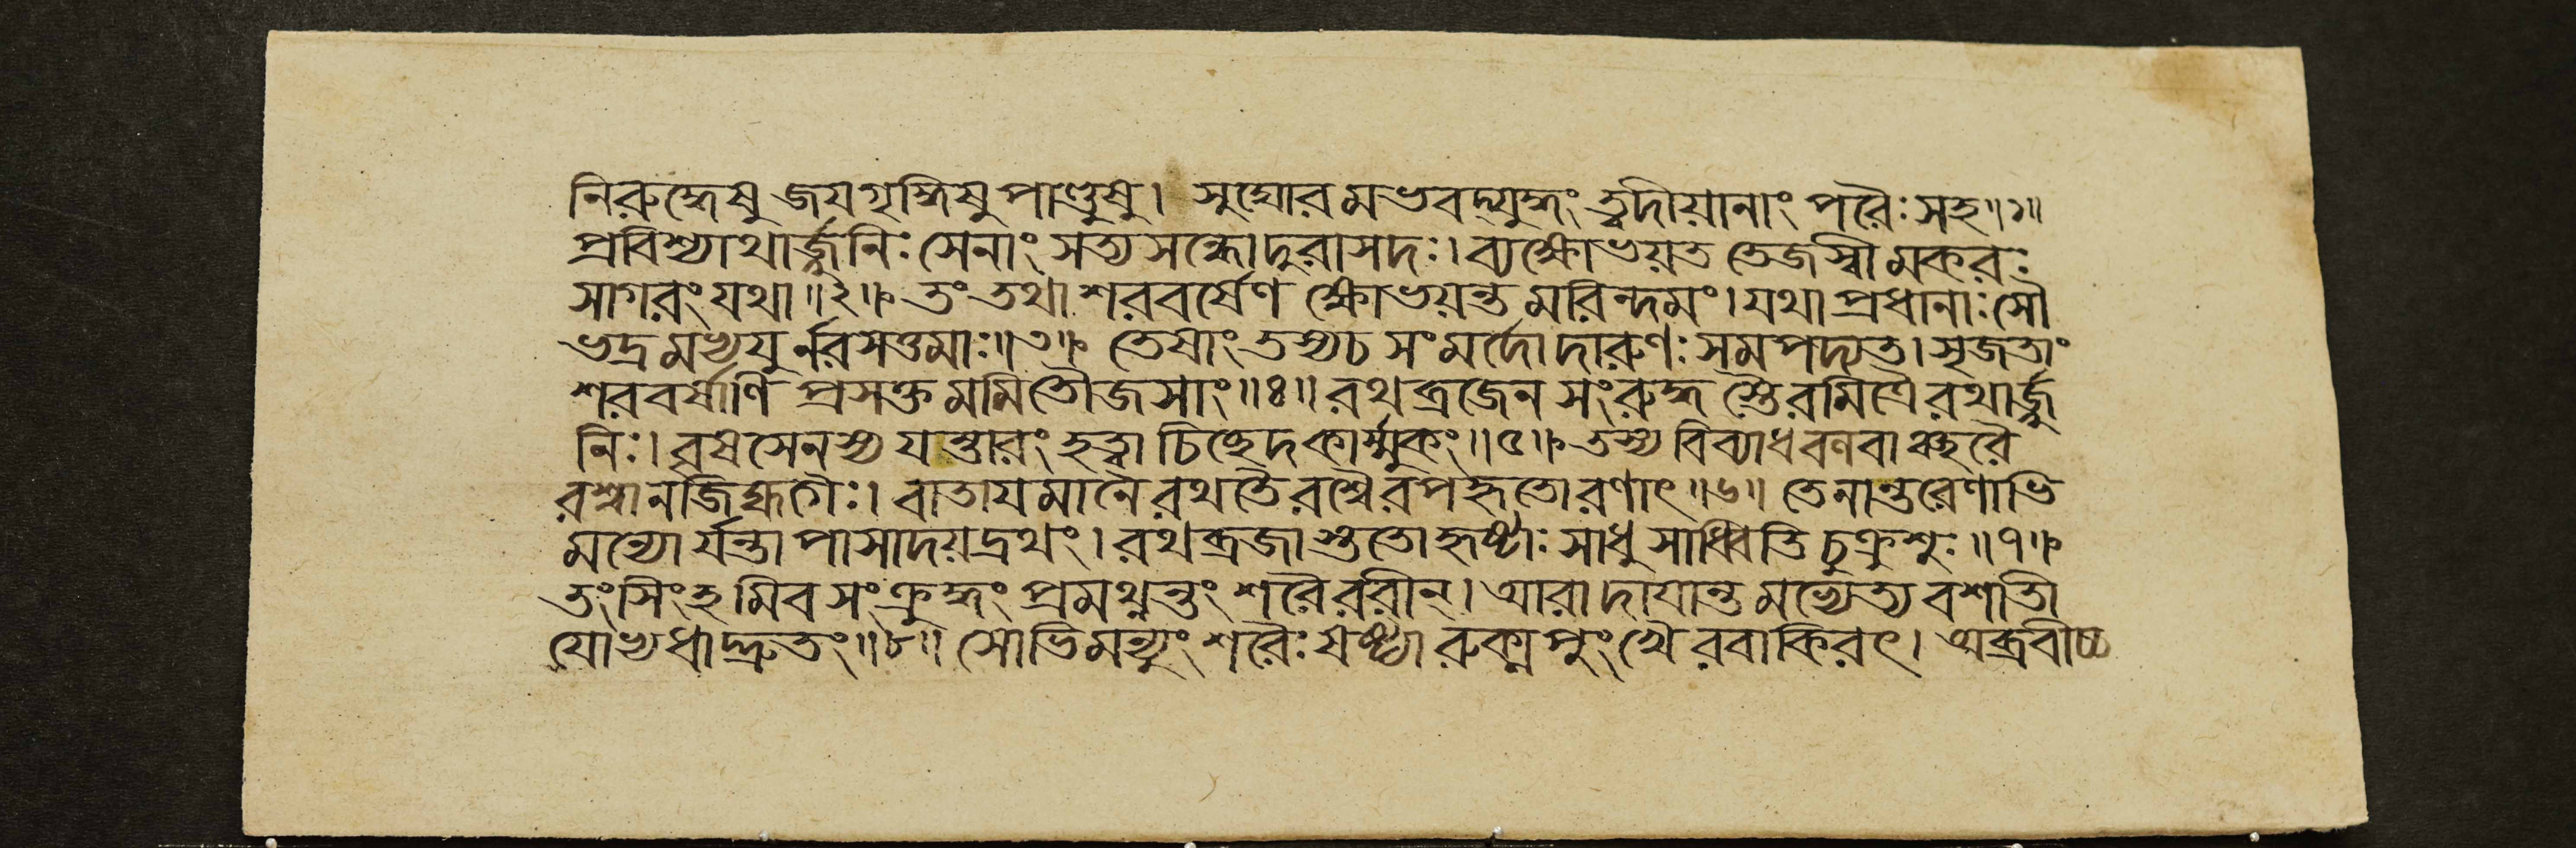 নিরুদ্ধেষু জয়গৃদ্ধিষু পাণ্ডুষু। সুঘোরমভবদ্যুদ্ধং ত্বদীয়ানাং পরৈঃ সহ॥১॥
প্রবিশ্যাথার্জ্জুনিঃ সেনাং সত্যসন্ধো দুরাসদঃ। ব্যক্ষোভয়ত তেজস্বী মকরঃ
সাগরং যথা॥২॥ তং তথা শরবর্ষেণ ক্ষোভয়ন্তমরিন্দমং। যথা প্রধানাঃ সৌ
ভদ্রমভ্যযুর্নরসত্তমাঃ॥৩॥ তেষাং তস্য চ সংমর্দো দারুণঃ সমপদ্যত। সৃজতাং
শরবর্ষাণি প্রসক্তমমিতৌজসাং॥৪॥ রথব্রজেন সংরুদ্ধস্তৈরমিত্রৈরথার্জ্জু
নিঃ। বৃষসেনস্য যন্তারং হত্বা চিচ্ছেদ কার্ম্মুকং॥৫॥ তস্য বিব্যাধ বলবাঞ্ছরৈ
রশ্বানজিহ্মগৈঃ। বাতায়মানৈরথ তৈরশ্বৈরপহৃতো রণাৎ॥৬॥ তেনান্তরেণাভি
মন্যোর্যন্তাপাসাদয়দ্রথং। রথব্রজাস্ততো হৃষ্টাঃ সাধু সাধ্বিতি চুক্রুশুঃ॥৭॥
তং সিংহমিব সংক্রুদ্ধং প্রমথ্নন্তং শরৈররীন্। আরাদায়ান্তমভ্যেত্য বশাতী
য়োভ্যধাদ্দ্রুতং॥৮॥ সোভিমন্যুং শরৈঃ ষষ্ট্যা রুক্মপুংখৈরবাকিরৎ। অব্রবীচ্চ